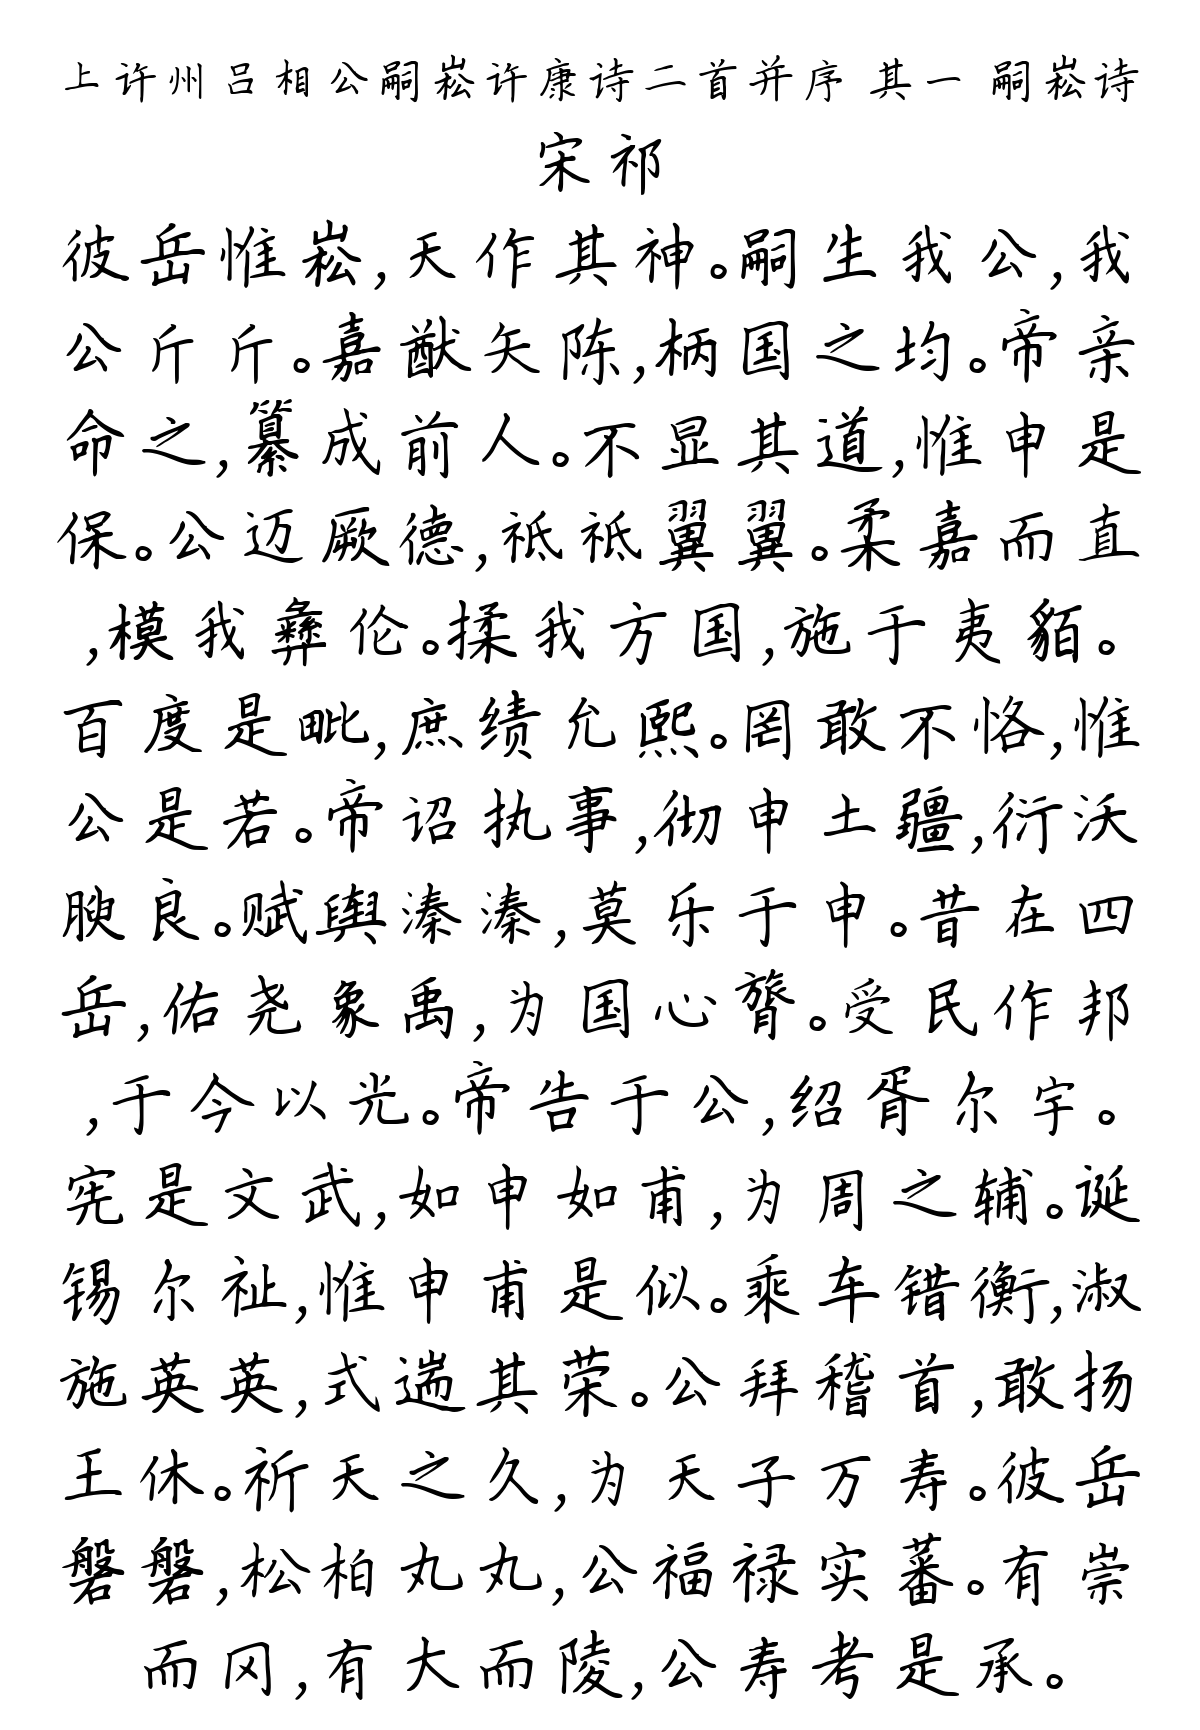 上许州吕相公嗣崧许康诗二首并序 其一 嗣崧诗
宋祁
彼岳惟崧,天作其神。嗣生我公,我
公斤斤。嘉猷矢陈,柄国之均。帝亲
命之,纂成前人。不显其道,惟申是
保。公迈厥德,祗祗翼翼。柔嘉而直
,模我彝伦。揉我方国,施于夷貊。
百度是毗,庶绩允熙。罔敢不恪,惟
公是若。帝诏执事,彻申土疆,衍沃
腴良。赋舆溱溱,莫乐于申。昔在四
岳,佑尧象禹,为国心膂。受民作邦
,于今以光。帝告于公,绍胥尔宇。
宪是文武,如申如甫,为周之辅。诞
锡尔祉,惟申甫是似。乘车错衡,淑
施英英,式遄其荣。公拜稽首,敢扬
王休。祈天之久,为天子万寿。彼岳
磐磐,松柏丸丸,公福禄实蕃。有崇
而冈,有大而陵,公寿考是承。